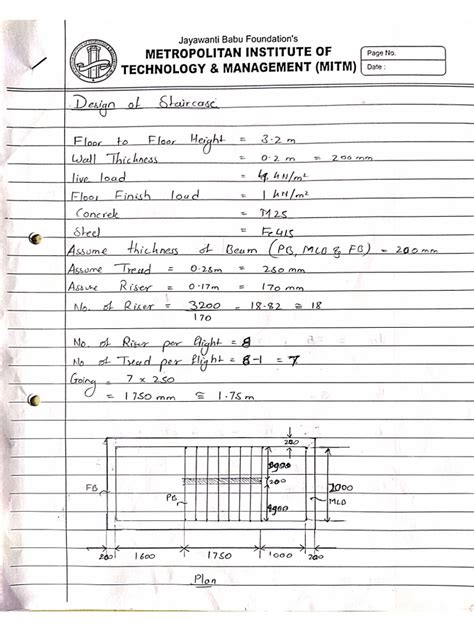 Jayawanti Babu Foundation's
METROPOLITAN INSTITUTE OF
TECHNOLOGY & MANAGEMENT (MITM)
Page No.
Date :
Design of Staircase
Floor to Floor Height = 3.2 m
Wall Thickness = 0.2 m = 200 mm
live load = 4 kN/m²
Floor Finish load = 1 kN/m²
Concrek = M25
Steel = Fe415
Assume thickness of Beam (PB, MLB & FB) = 200 mm
Assume Tread = 0.25m = 250 mm
Assure Riser = 0.17m = 170 mm
No. of Riser = 3200 = 18.82 ≅ 18
170
No. of Riser per flight = 8
No of Tread per flight = 8-1 = 7
Going = 7 x 250
= 1750 mm ≅ 1.75m
200
FB
PB
200
2000
MLB
200
1600
1750
1000
200
Plan